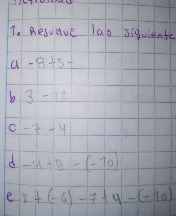 1. Resuelve las siguiente
a -8+5=
b 3 -12
c -7-4
d -4+8-(-10)
e +(-6)-7+4-(-10)